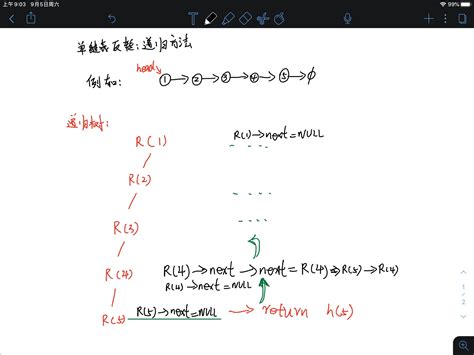 上午9:03 9月5日周六
99%
单链表反转:递归方法
head
例如: ① → ② → ③ → ④ → ⑤ → ∅
递归树:
R(1)
R(1)→next=NULL
R(2)
R(3)
R(4)
R(4)→next→next=R(4)⇒R(5)→R(4)
R(4)→next=NULL
R(5)
R(5)→next=NULL → return h(5)
1
2